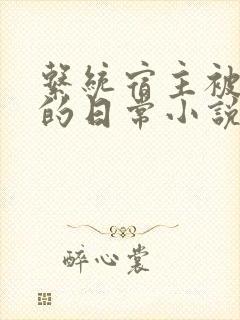 繫統宿主被
的日常小說
醉心裳